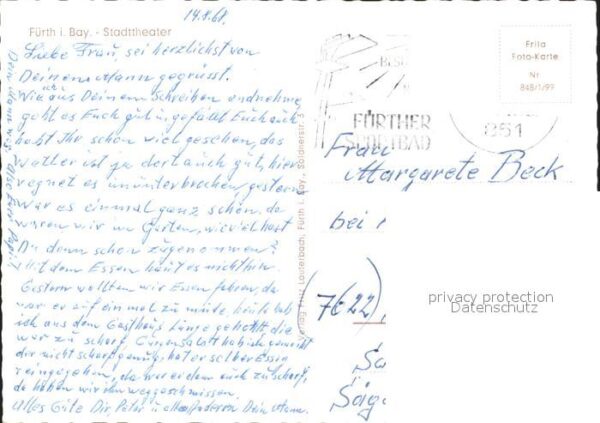 14.8.68.
Fürth i. Bay. - Stadttheater
Liebe Frau, sei herzlichst von
Deinem Mann gegrüsst.
Wie ich aus Deinem Schreiben endnehme,
geht es Euch gut u. gefällt Euch auch
habt Ihr schon viel gesehen, das
Wetter ist ja dort auch gut, hier
regnet es ununterbrochen, gestern
war es einmal ganz schön, da
waren wir im Garten, wieviel hast
Du denn schon zugenommen?
Mit dem Essen haut es nicht hin.
Gestern wollten wir Essen fahren, da
war er auf einmal zu müde, heute hab
ich aus dem Gasthaus Lunge geholt, die
war zu scharf, Gurkensalat hab ich gemacht
der nicht scharf genug, hat er selber Essig
reingegeben, da war er dem auch zu scharf,
da haben wir ihn weggeschmissen.
Alles Gute Dir, Peter u. alle Anderen Dein Mann.
Verlag Fritz Lauterbach, Fürth i. Bay., Soldnerstr. 5
BESU
FÜRTHER
851
Frila
Foto-Karte
Nr.
848/1/99
Frau
Margarete Beck
bei
(7622)
privacy protection
Datenschutz
Sa
Säg